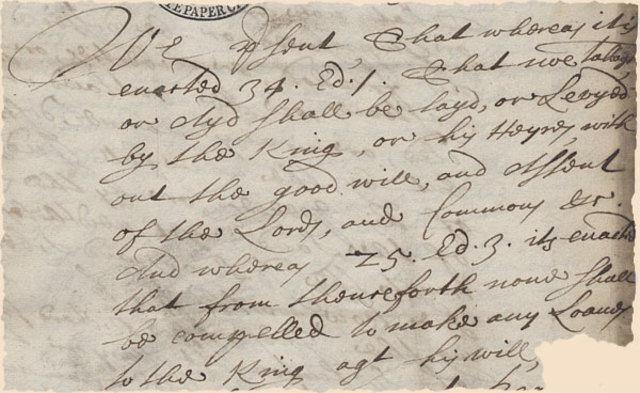 E PAPER
We p'sent, That whereas its
enacted 34. Ed. 1. That noe tallage,
or Ayd shall be layd, or Levyed
by the King, or his Heyres with
out the good will, and Assent
of the Lords, and Commons &c.
And whereas 25. Ed. 3. its enacted
that from thenceforth none shall
be compelled to make any Loanes
to the King agt his will,